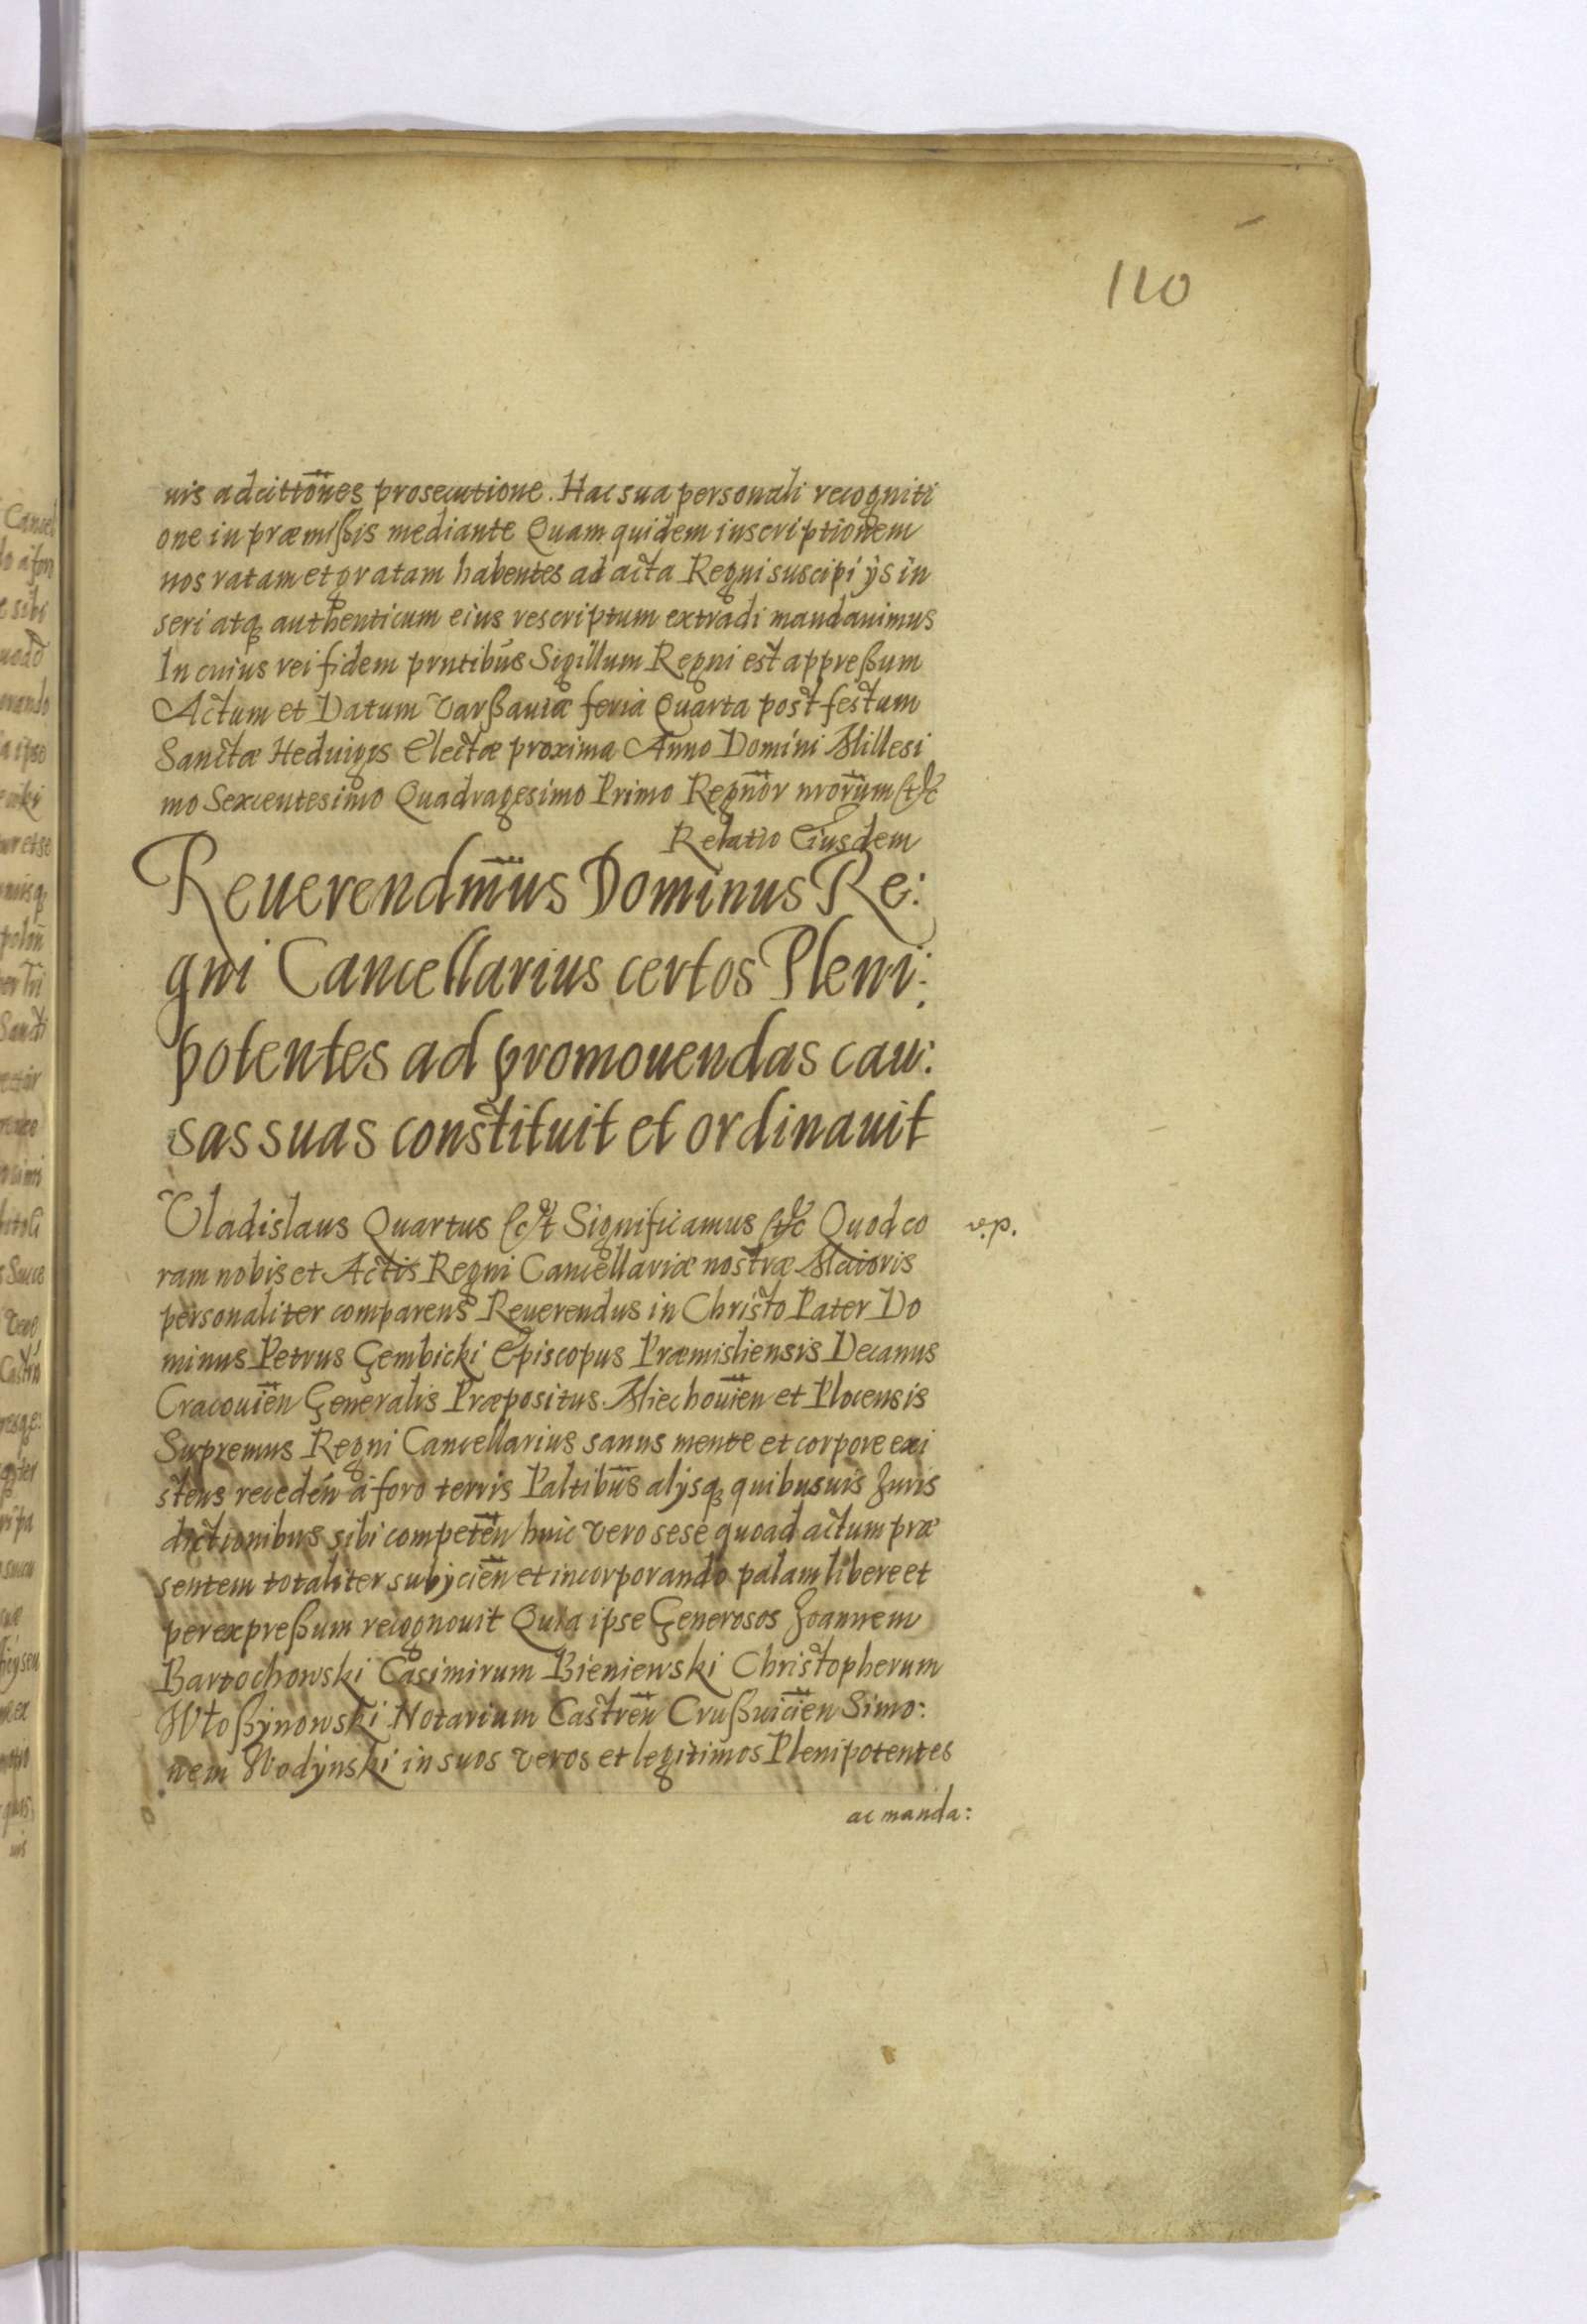 110
uis ad cittōnes prosecutione. Hac sua personali recogniti
one in præmißis mediante Quam quidem inscriptionem
nos ratam et gratam habentes ad acta Regni suscipi ÿs in
seri atq authenticum eius rescriptum extradi mandauimus
In cuius rei fidem prntibus Sigillum Regni est appreßum
Actum et Datum Varßauiæ feria Quarta post festum
Sanctæ Heduigis Electæ proxima Anno Domini Millesi
mo Sexcentesimo Quadragesimo Primo Regnōr nrōrum &c
Relatio Eiusdem
Reuerendm̄us Dominus Re:
gni Cancellarius certos Pleni:
potentes ad promouendas cau:
sas suas constituit et ordinauit
Vladislaus Quartus &c Significamus &c Quod co
v.p.
ram nobis et Actis Regni Cancellariæ nostræ Maioris
personaliter comparens Reuerendus in Christo Pater Do
minus Petrus Gembicki Episcopus Præmisliensis Decanus
Cracouien̄ Generalis Præpositus Miechouien̄ et Plocensis
Supremus Regni Cancellarius sanus mente et corpore exi
stens receden̄ a foro terris Paltibus̄ alÿsq quibusuis Juris
dictionibus sibi competen̄ huic vero sese quoad actum præ
sentem totaliter subÿcien̄ et incorporando palam libere et
per expreßum recognouit Quia ipse Generosos Joannem
Bartochowski Casimirum Bieniewski Christopherum
Włoßÿnowski Notarium Castren̄ Crußuicien̄ Simo:
nem Wodÿnski in suos veros et legitimos Plenipotentes
ac manda: